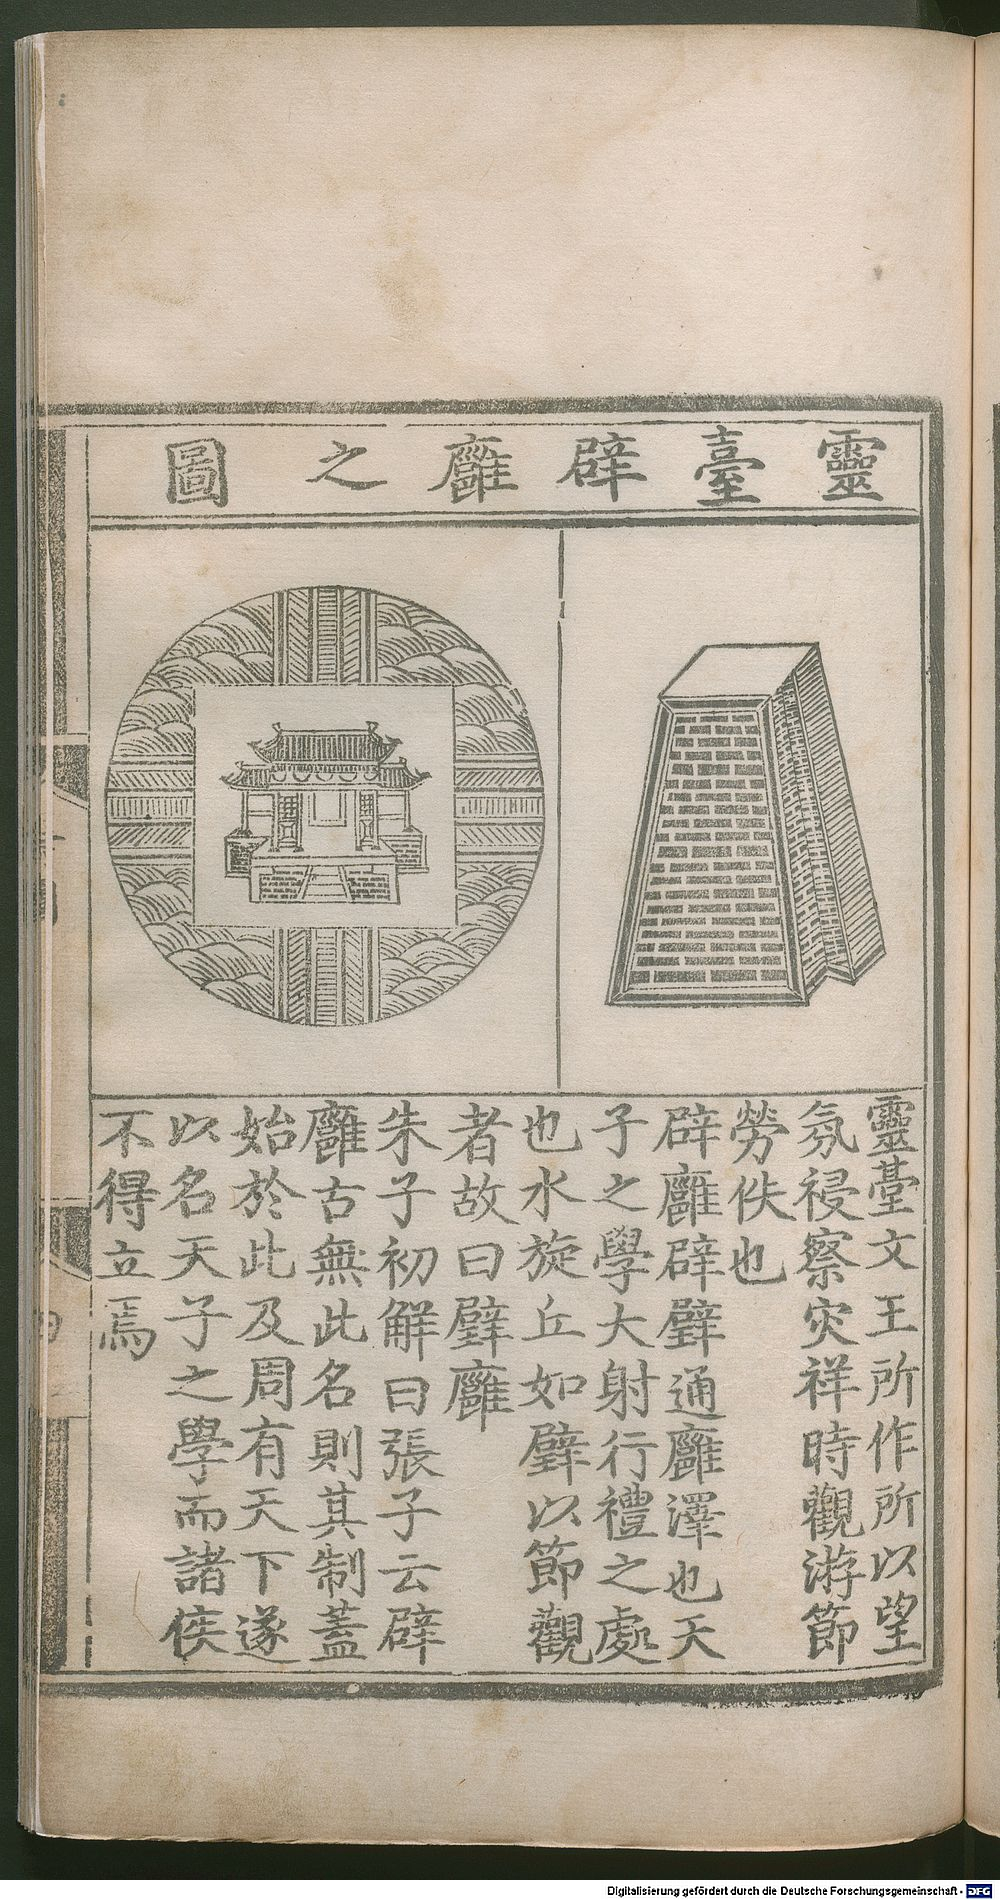 靈臺辟廱之圖
靈臺文王所作所以望
氛祲察灾祥時觀游節
勞佚也
辟廱辟璧通廱澤也天
子之學大射行禮之處
也水旋丘如璧以節觀
者故曰璧廱
朱子初解曰張子云辟
廱古無此名則其制蓋
始於此及周有天下遂
以名天子之學而諸侯
不得立焉
Digitalisierung gefördert durch die Deutsche Forschungsgemeinschaft - DFG